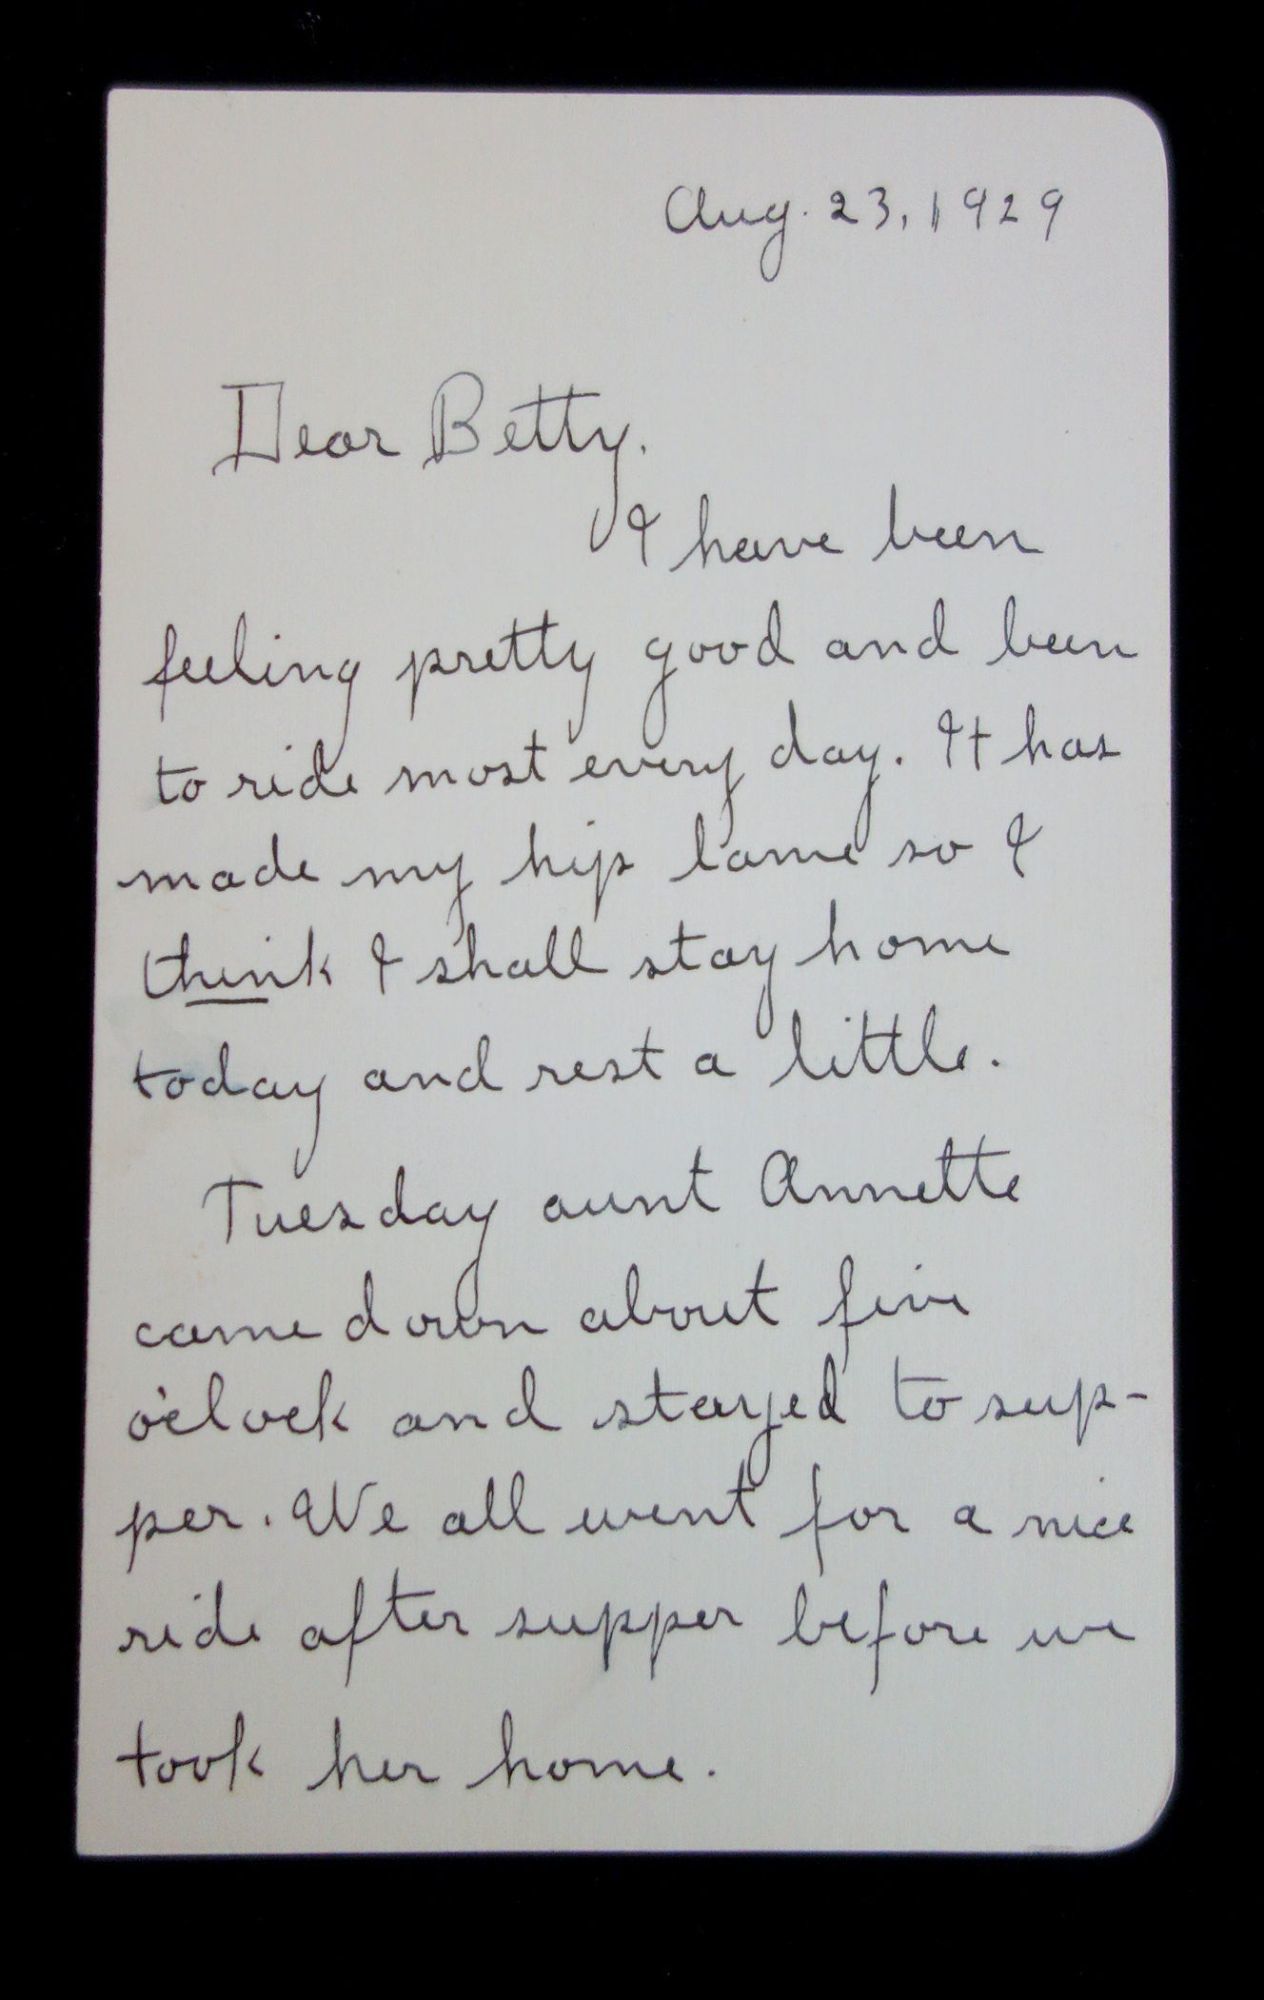 Aug. 23, 1929
Dear Betty.
I have been
feeling pretty good and been
to ride most every day. It has
made my hip lame so I
think I shall stay home
today and rest a little.
Tuesday aunt Annette
came down about five
o'clock and stayed to sup-
per. We all went for a nice
ride after supper before we
took her home.